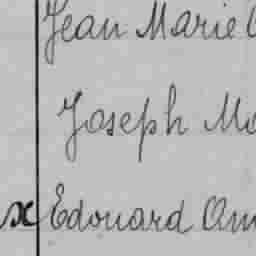 Jean Marie
Joseph
x Edouard